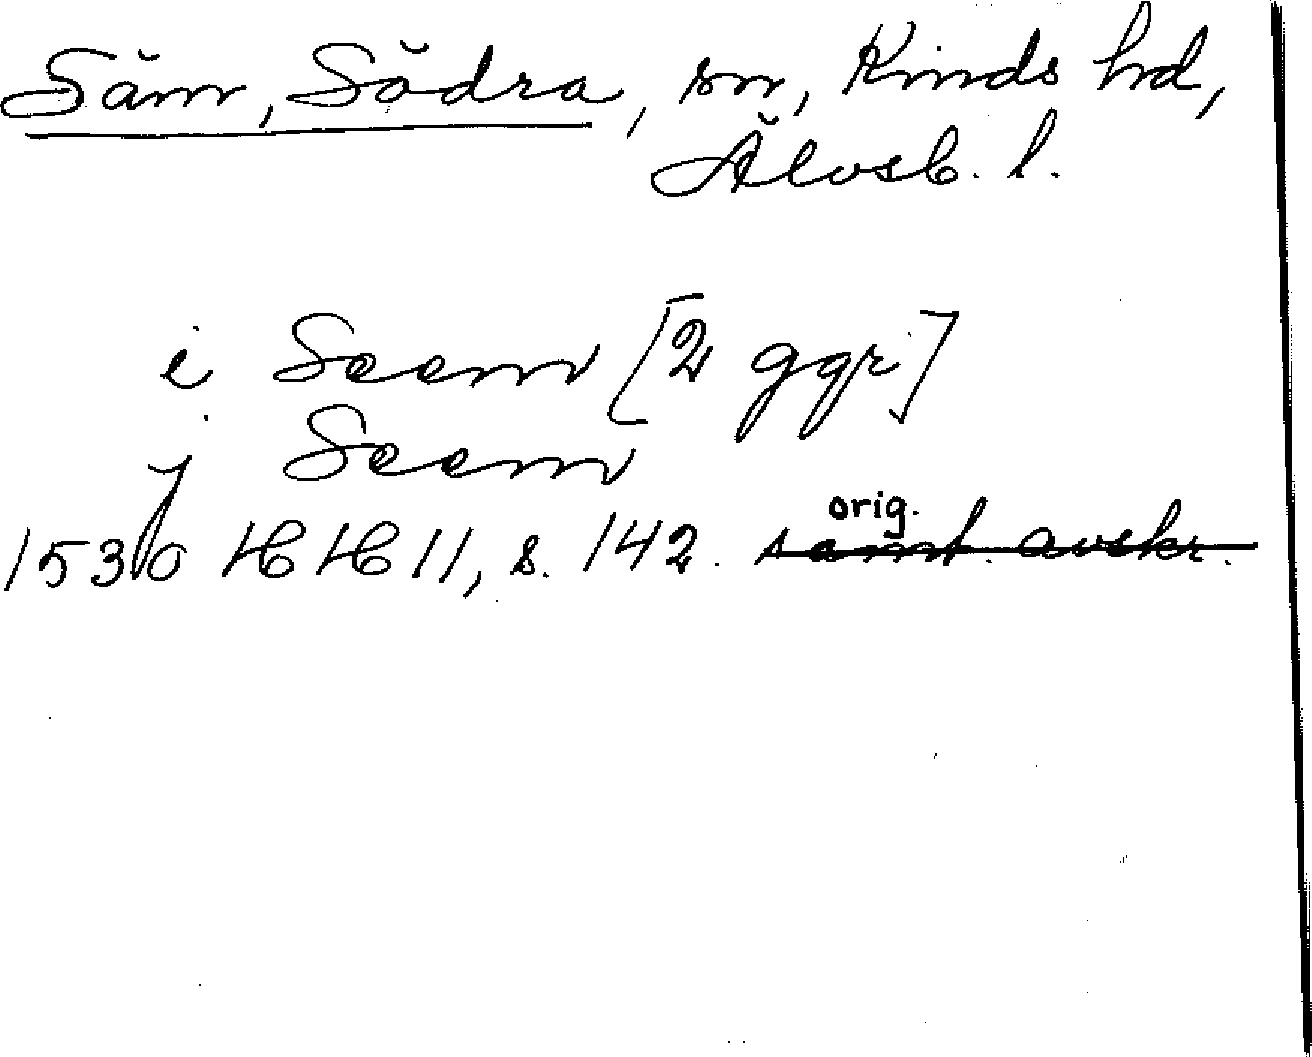 Säm, Södra, sn, Kinds hd,
Älvsb. l.
i Seem [2 ggr]
j Seem
orig.
1530 HH 11, s. 142. samt. avskr.